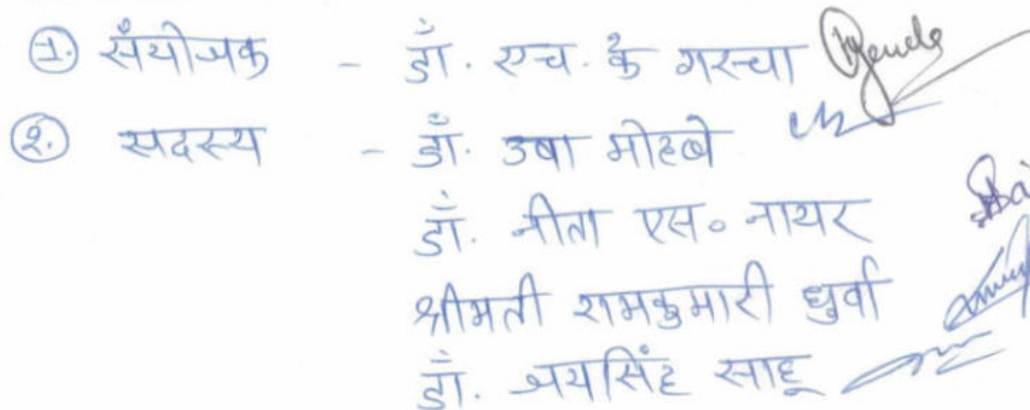 ①. संयोजक - डॉ. एच. के गरचा
②. सदस्य - डॉ. उषा मोहबे
डॉ. नीता एस॰ नायर
श्रीमती रामकुमारी धुर्वा
डॉ. जयसिंह साहू